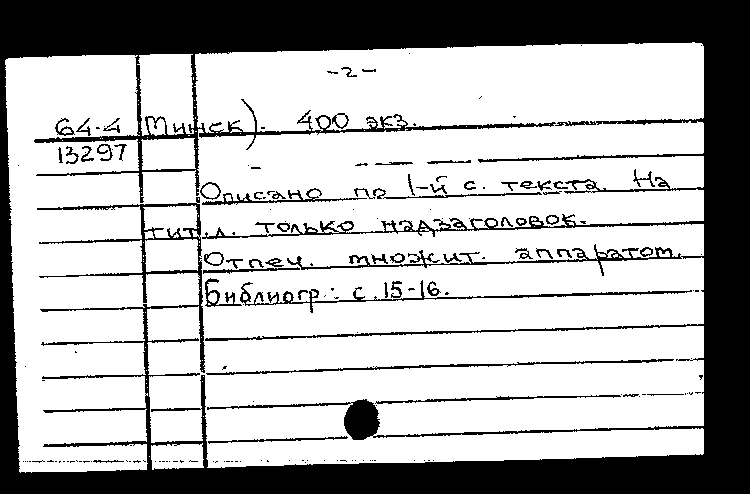 -2-
64-4 Минск). 400 экз.
13297
Описано по 1-й с. текста. На
тит.л. только надзаголовок.
Отпеч. множит. аппаратом.
Библиогр.: с.15-16.